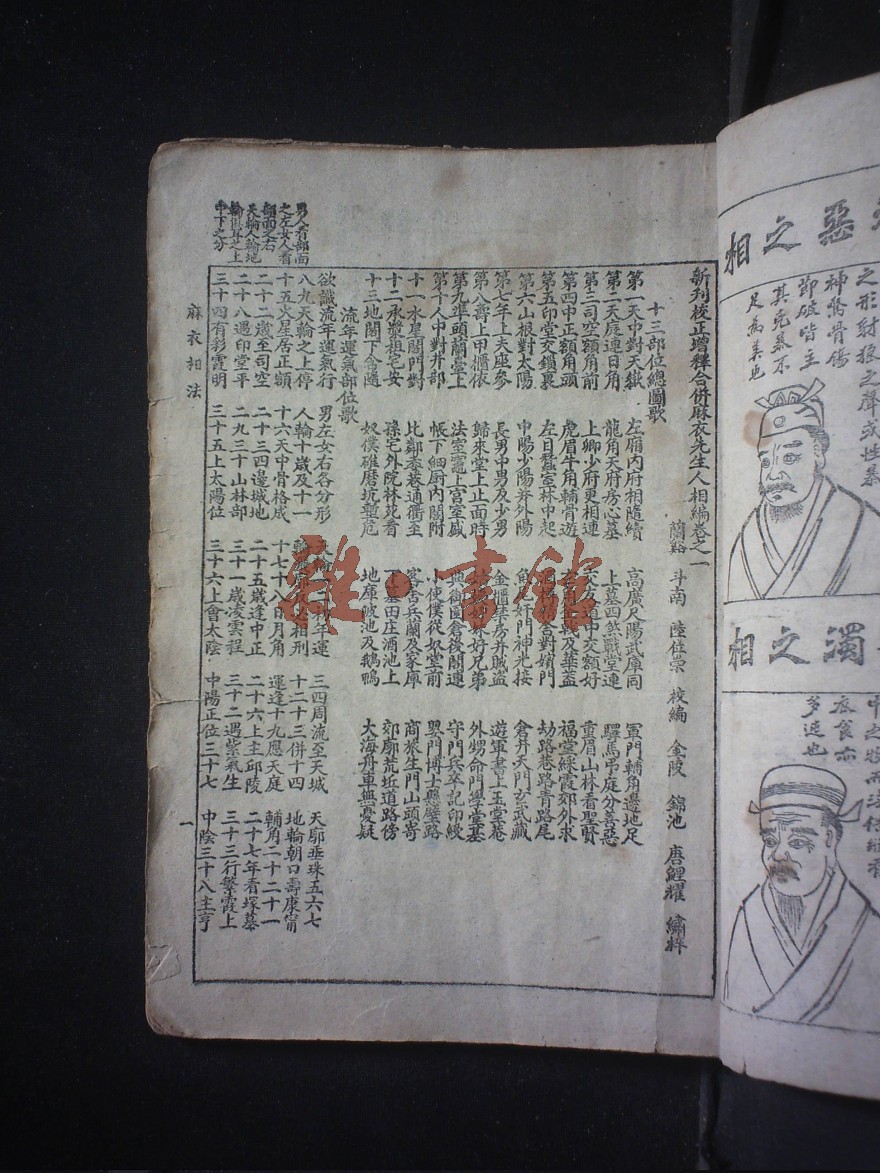 惡之相
之形射狼之聲或性暴
神驚骨傷
節破皆主
其克暴不
足為美也
濁之相
衣食亦
多迍也
新刊校正增釋合併麻衣先生人相編卷之一
蘭谿 斗南 陸位崇 校編 金陵 錦池 唐鯉耀 繡梓
十三部位總圖歌
第一天中對天嶽 左廂內府相隨續 高廣尺陽武庫同 軍門輔角邊地足
第二天庭連日角 龍角天府房心墓 上墓四煞戰堂連 驛馬弔庭分善惡
第三司空額角前 上卿少府更相連 交友道中交額好 重眉山林看聖賢
第四中正額角頭 虎眉牛角輔骨遊 及華蓋 福堂綵霞郊外求
第五印堂交鎖裏 左目蠶室林中起 對嬪門 劫路巷路青路尾
第六山根對太陽 中陽少陽并外陽 角 奸門神光接 倉井天門玄武藏
第七年上夫座參 長男中男及少男 金櫃 房并賊盜 遊軍書上玉堂菴
第八壽上甲櫃依 歸來堂上正面時 好兄弟 外甥命門學堂基
第九準頭蘭臺上 法室竈上宮室盛 典御園倉後閣連 守門兵卒記印綬
第十人中對井部 帳下細厨內閣附 小使僕從妓堂前 嬰門博士懸壁路
十一水星閣門對 比鄰委巷通衢至 客舍兵蘭及家庫 商旅生門山頭寄
十二承漿祖宅安 孫宅外院林苑看 下墓田庄酒池上 郊廓荒坵道路傍
十三地閣下舍隨 奴僕碓磨坑塹危 地庫陂池及鵝鴨 大海舟車無憂疑
流年運氣部位歌
欲識流年運氣行 男左女右各分形 天輪一二初年運 三四周流至天城 天廓垂珠五六七
八九天輪之上停 人輪十歲及十一 輪飛廓反必相刑 十二十三併十四 地輪朝口壽康甯
十五火星居正額 十六天中骨格成 十七十八日月角 運逢十九應天庭 輔角二十二十一
二十二歲至司空 二十三四邊城地 二十五歲逢中正 二十六上主邱陵 二十七年看塚墓
二十八遇印堂平 二九三十山林部 三十一歲凌雲程 三十二遇紫氣生 三十三行繁霞上
三十四有彩霞明 三十五上太陽位 三十六上會太陰 中陽正位三十七 中陰三十八主亨
男人看部面
之左女人看
部面之右
天輪人輪地
輪俱耳之上
中下之分
麻衣相法
一
雜·書館